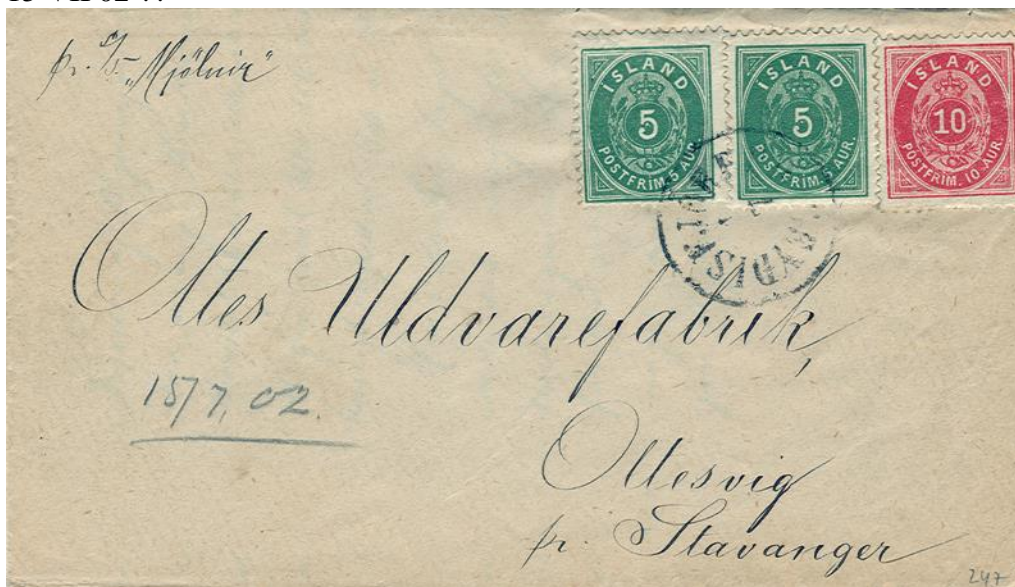 pr. S/S „Mjölnir"
ÍSLAND
5
POSTFRIM. 5 AUR.
ÍSLAND
5
POSTFRIM. 5 AUR.
ÍSLAND
10
POSTFRIM. 10 AUR.
Oltes Uldvarefabrik,
15/7, 02.
Oltesvig
pr. Stavanger
247